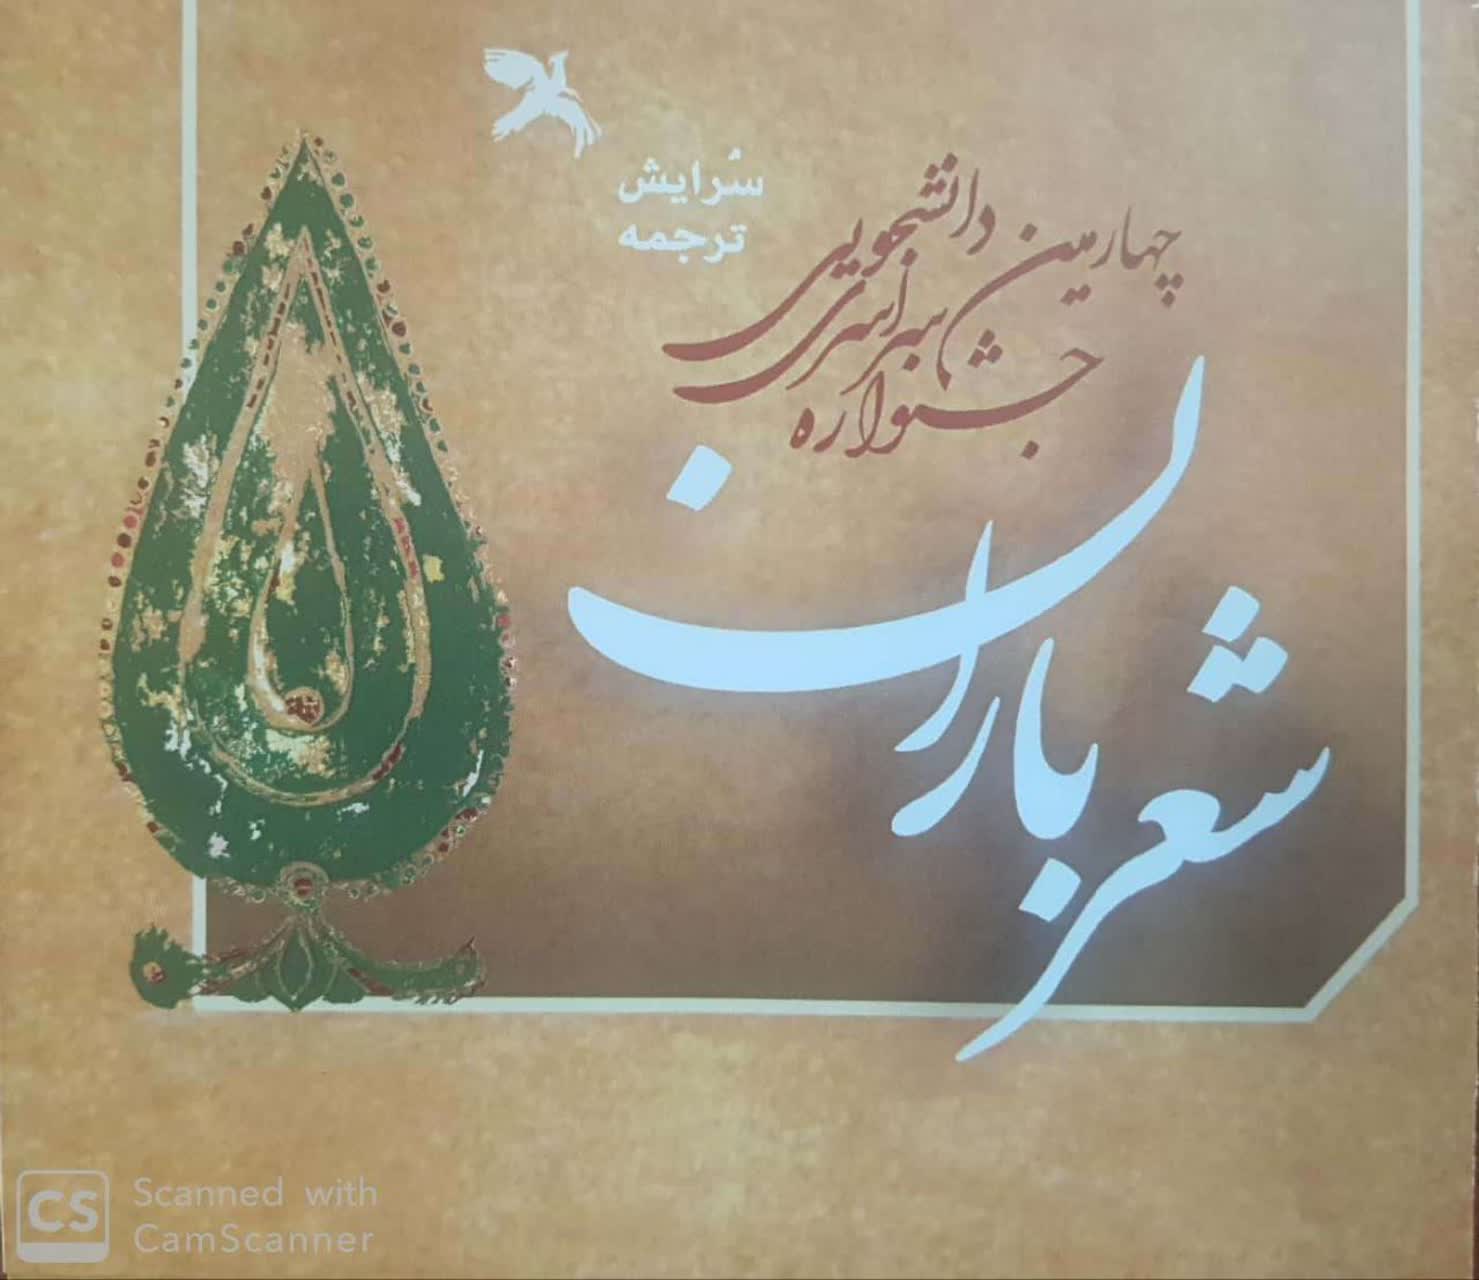 سُرایش
ترجمه
چهارمین
دانشجویی
سراسری
جشنواره
شعر باران
CS Scanned with
CamScanner